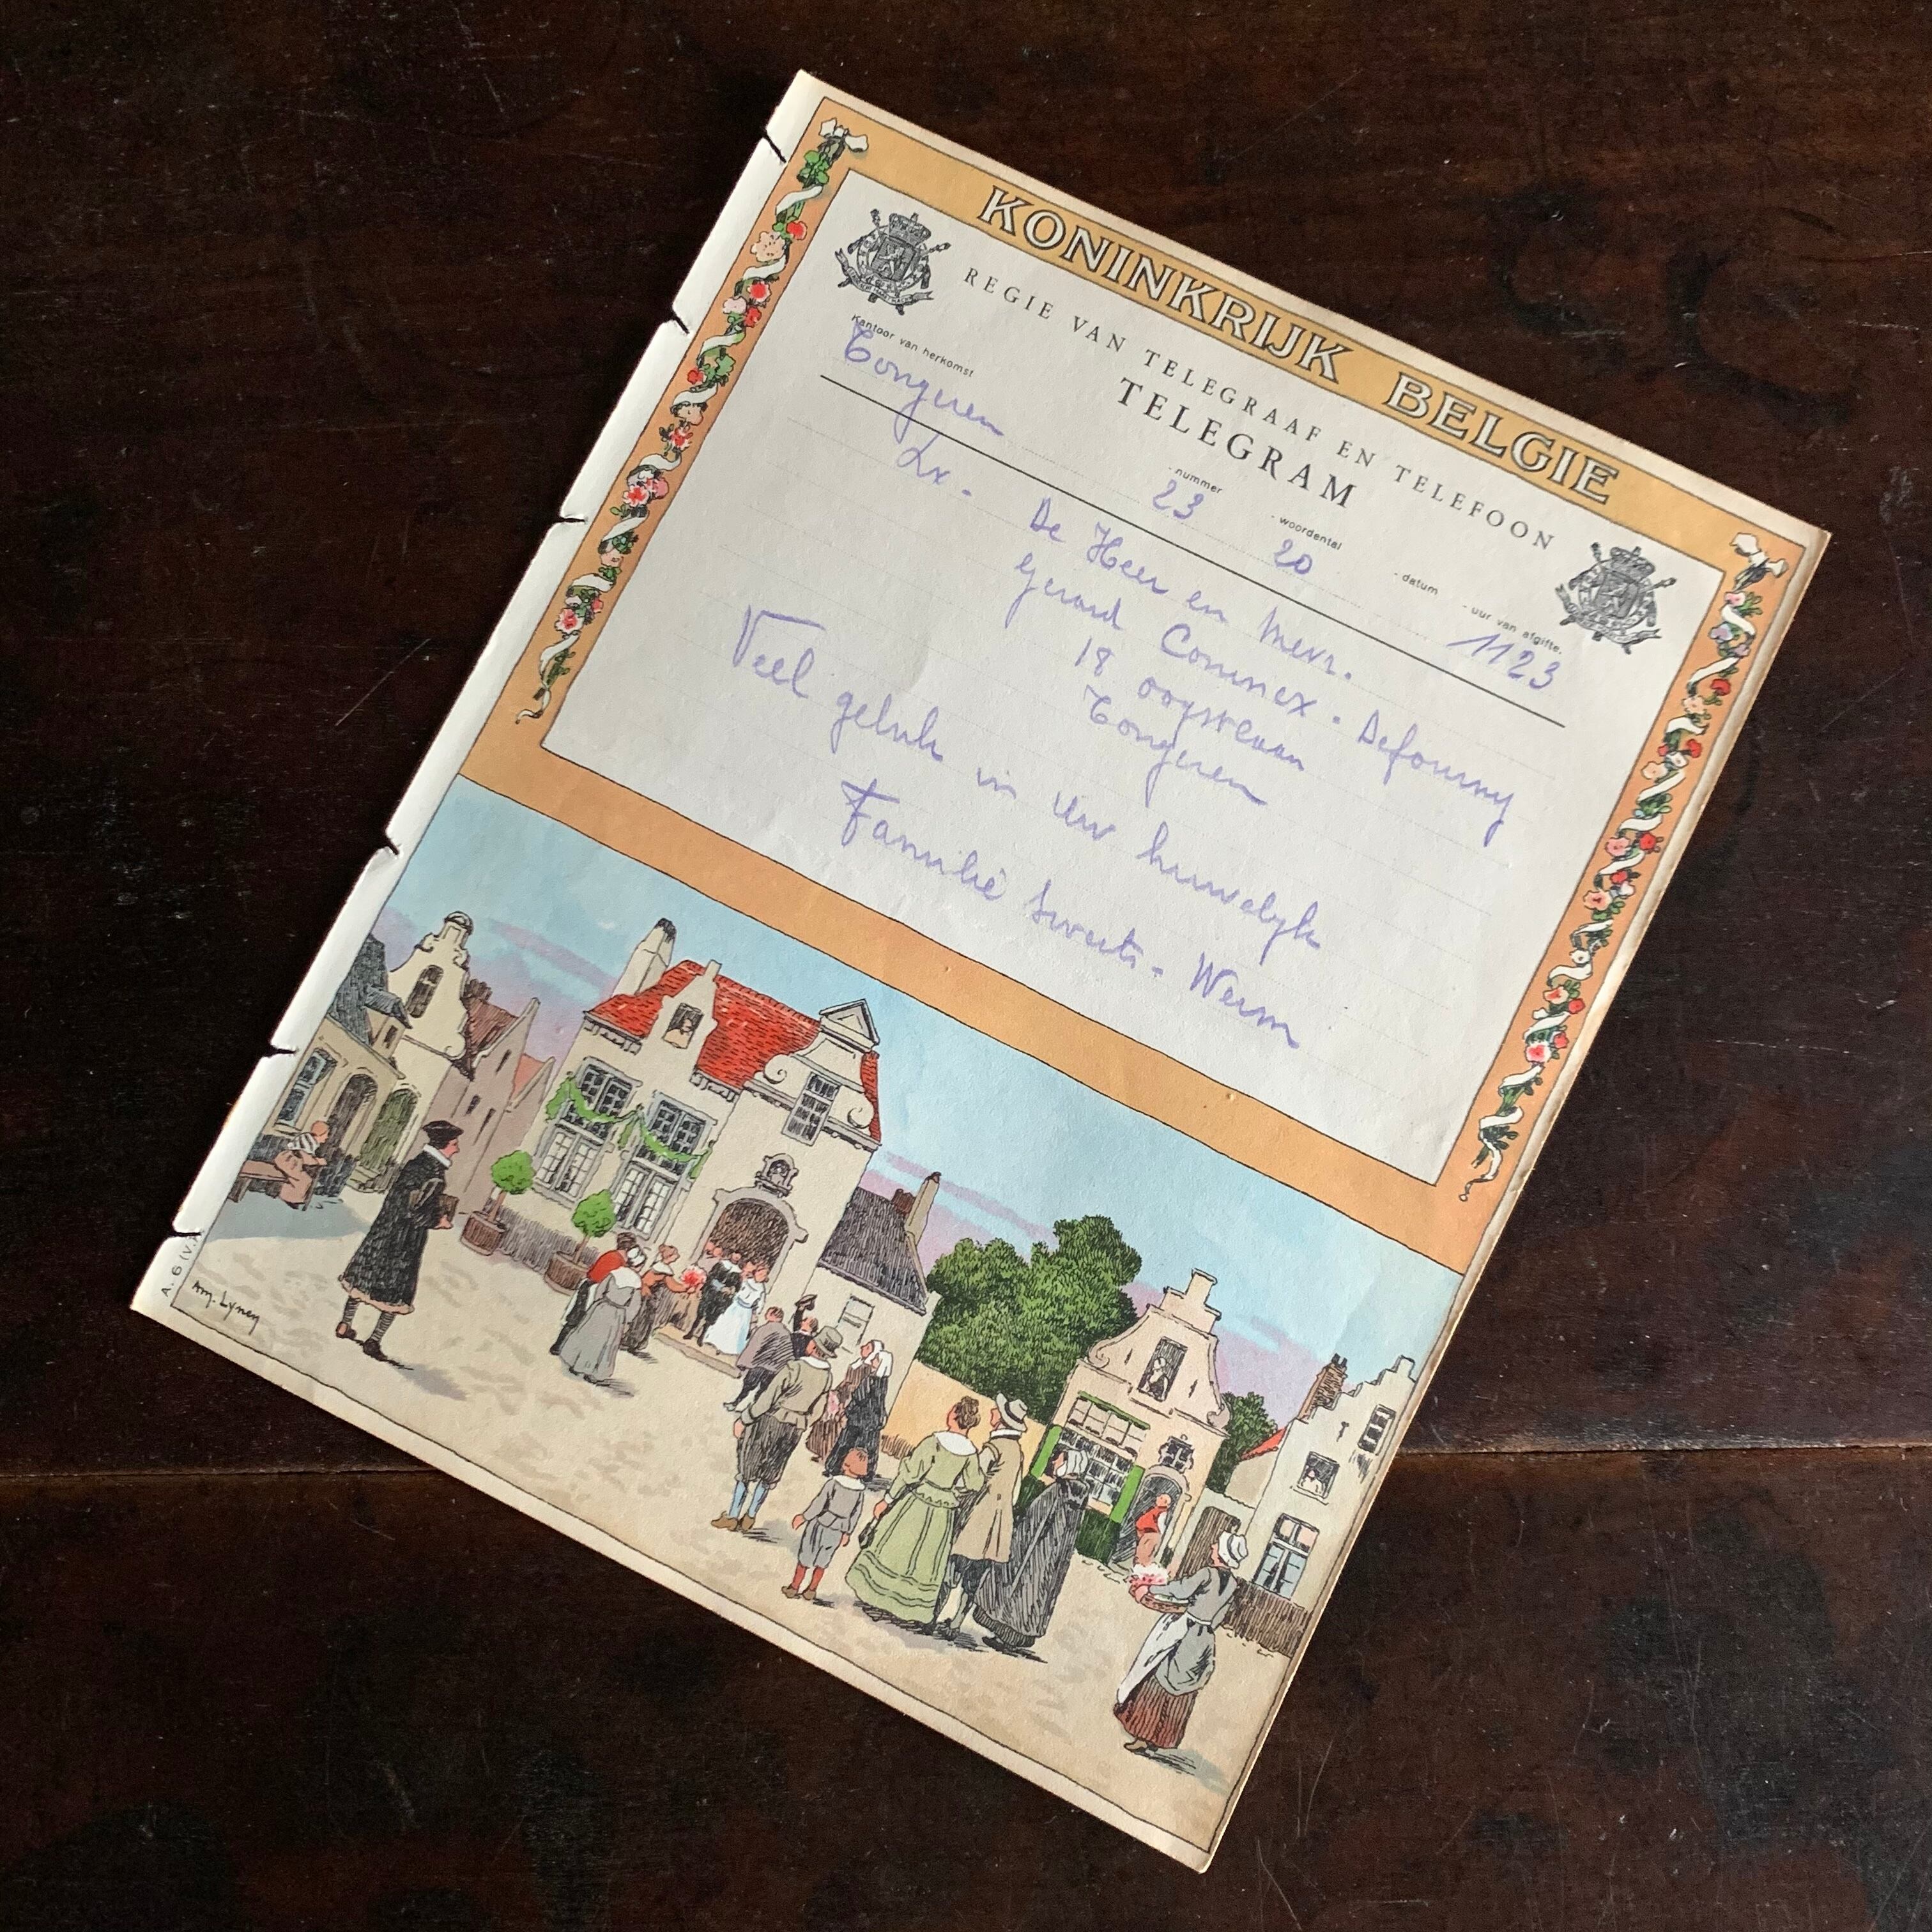 KONINKRIJK BELGIE
REGIE VAN TELEGRAAF EN TELEFOON
TELEGRAM
Kantoor van herkomst - nummer - woordental - datum - uur van afgifte.
Tongeren 23 20 1123
Lx - De Heer en Mevr.
Gerard Coninex - Defourny
18 oogstlaan
Tongeren
Veel geluk in Uw huwelyk
Familie Sweets - Werm
Am. Lynen
A. 6 (V.